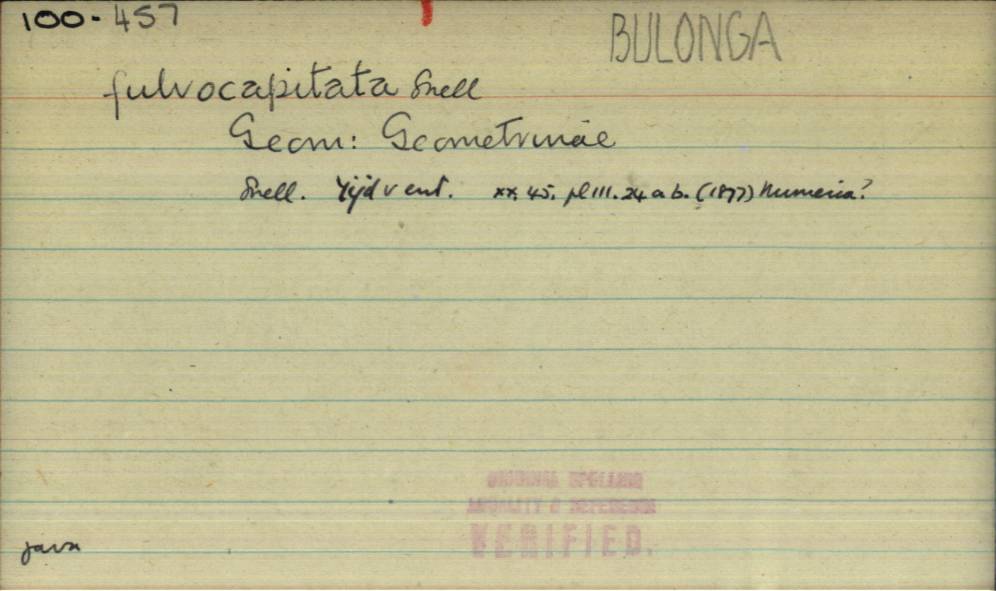 100-457
BULONGA
fulvocapitata Snell
Geom: Geometrinae
Snell. Tijd v ent. xx. 45. pl III. 24 a b. (1877) Numeria?
ORIGINAL SPELLING
LOCALITY & REFERENCE
VERIFIED.
Java